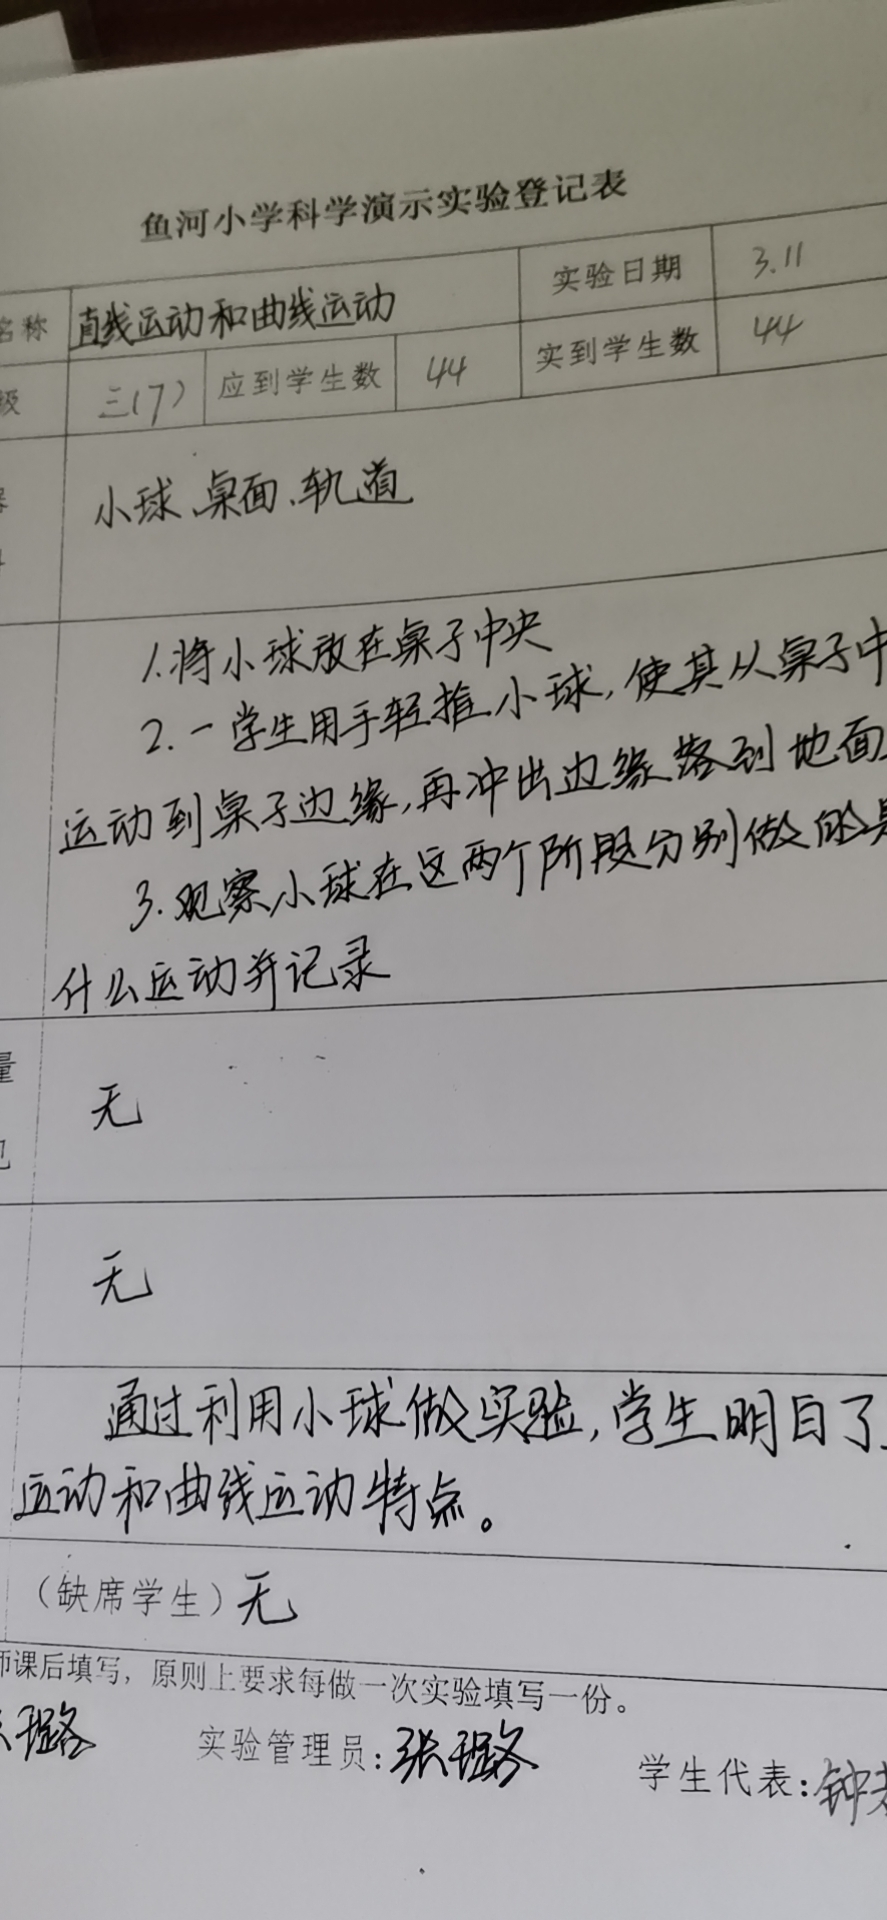 鱼河小学科学演示实验登记表
名称 直线运动和曲线运动 实验日期 3.11
级 三(7) 应到学生数 44 实到学生数 44
小球、桌面、轨道
1.将小球放在桌子中央
2.一学生用手轻推小球,使其从桌子中
运动到桌子边缘,再冲出边缘落到地面
3.观察小球在这两个阶段分别做的是
什么运动并记录
量
无
无
通过利用小球做实验,学生明白了
运动和曲线运动特点。
(缺席学生)无
师课后填写,原则上要求每做一次实验填写一份。
张璐 实验管理员:张璐 学生代表:钟